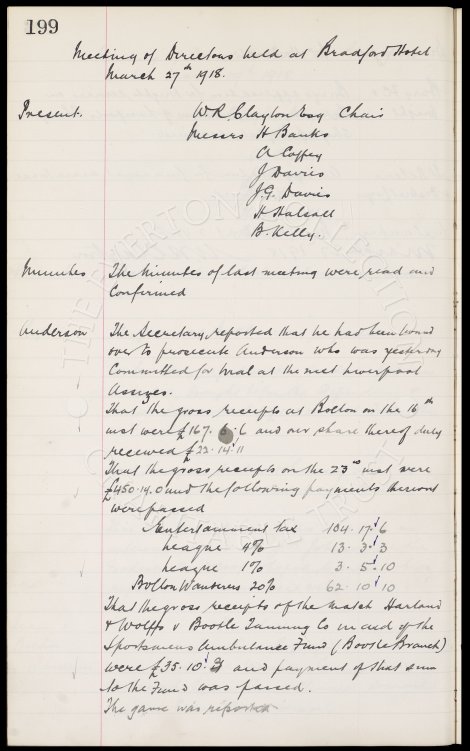 199
Meeting of Directors held at Bradford Hotel
March 27th 1918.
Present. W. R. Clayton Esq Chair
Messrs H Banks
A Coffey
J Davies
J. G. Davies
H Halsall
B. Kelly.
Minutes The Minutes of last meeting were read and
Confirmed
Anderson The Secretary reported that he had been bound
over to prosecute Anderson who was yesterday
Committed for trial at the next Liverpool
Assizes.
That the gross receipts at Bolton on the 16th
inst were £167. 6. 6 and our share thereof duly
received £22. 14. 11
That the gross receipts on the 23rd inst were
£450. 14. 0 and the following payments thereout
were passed
Entertainment Tax 134. 17. 6
League 4% 13. 3. 3
League 1% 3. 5. 10
Bolton Wanderers 20% 62. 10. 10
That the gross receipts of the match Harland
& Wolffs v Bootle Tanning Co in aid of the
Sportsmens Ambulance Fund (Bootle Branch)
were £35. 10. and payment of that sum
to the Fund was passed.
The game was reported
THE EVERTON COLLECTION
CHARITABLE TRUST